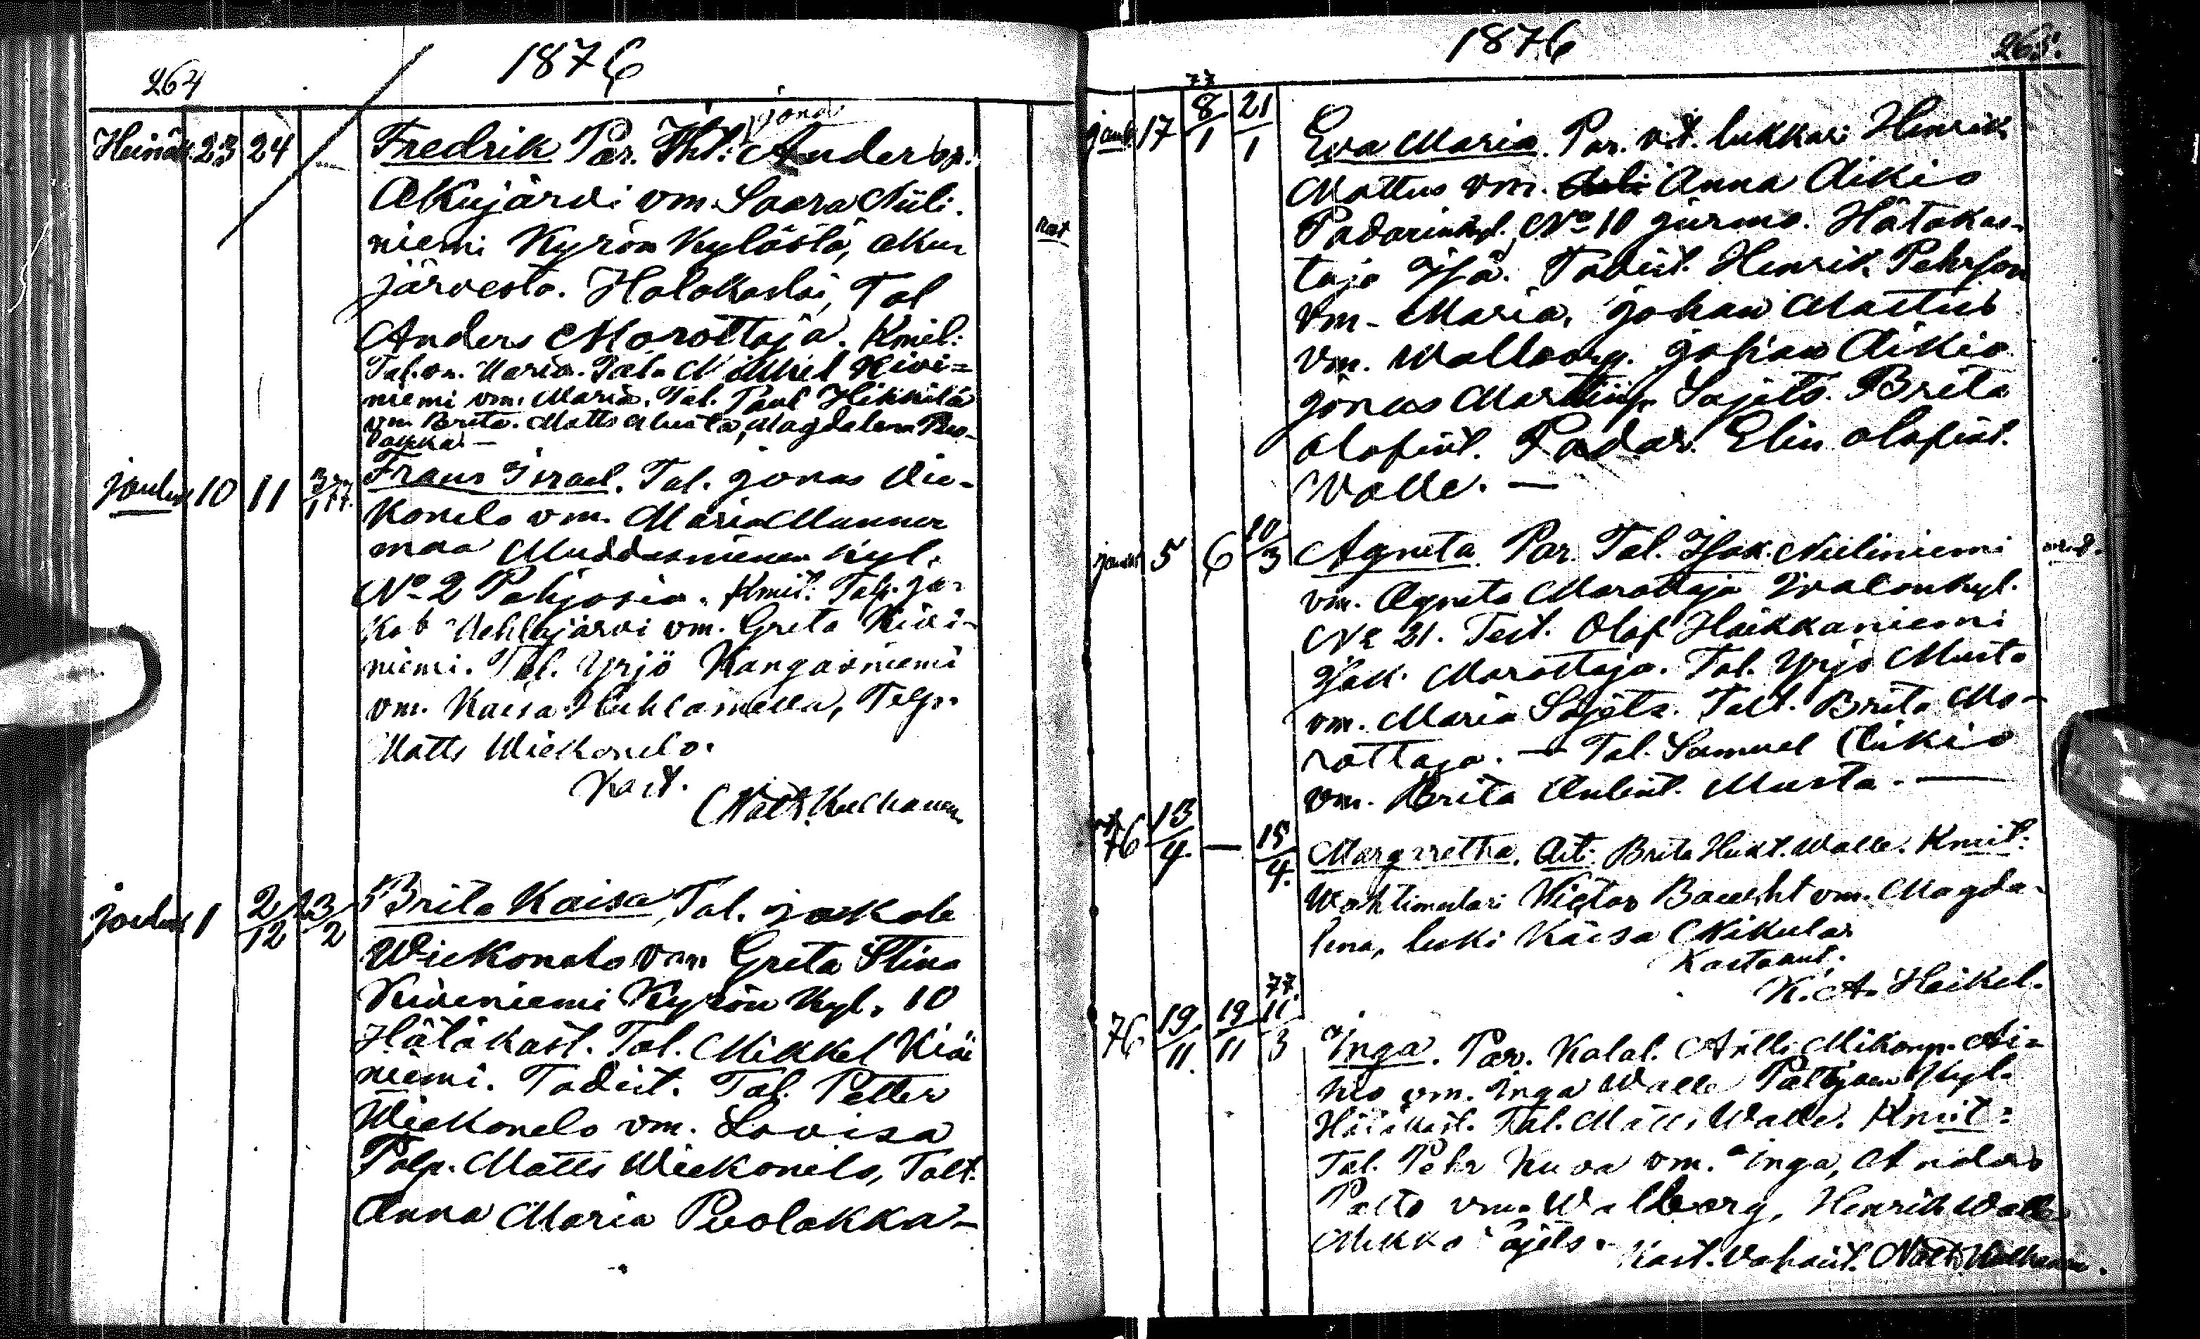 264
1876
Heinäk. 23 24 Fredrik Par. Tal: Anders p.
Akujärvi vm. Saara Niili-
niemi Kyrön kylästä, Aku
järvestä. Hätäkastoi, Tal
Anders Morottaja. Kmit:
Tal. vm. Maria. Tal. Mikkel Kivi-
niemi vm. Maria. Tal. Paul Heikkilä
vm. Brita. Matts Musta, Magdalena Puo-
lakka. —
jouluk 10 11 3/1 77. Frans Israel. Tal. jonas Wie-
konelo vm. Maria Manner
maa Muddusniemen kyl.
No 2 Pohjosia. Kmit: Talp. ja-
kob vm. Greta Kivi-
niemi. Tal. Yrjö Kangasniemi
vm. Kaisa Talp.
Matts Wiekonelo.
Kast.
jouluk 1 2/12 23/2 Brita Kaisa, Tal. jakob
Wiekonelo vm. Greta Stina
Kiviniemi Kyrön kyl. 10
Hätäkast. Tal. Mikkel Kivi
niemi. Todist. Tal. Petter
Wiekonelo vm. Lovisa
Talp. Matts Wiekonelo, Talt.
Anna Maria Puolakka —
1876
265.
77
jouluk 17 8/1 21/1 Eva Maria. Par. vt. lukkari Henrik
Mattus vm. Anna Aikio
Padarinkyl. No 10 Hätäkas-
taja Isä. Todist. Henrik Pehrson
vm. Maria, johan Mattus
vm. Wallborg. johan Aikio
jonas Sajets. Brita
Olofint. Padar. Elin Olofint.
Walle. —
5 6 10/3 Agneta Par. Tal. Isak. Niiliniemi
vm. Agneta Morottaja Ivalonkyl.
No 21. Test. Olof Haikkaniemi
Isak. Morottaja. Tal. Yrjö Musta
vm. Maria Sajets. Talt. Brita Mo-
rottaja. — Tal. Samuel Aikio
vm. Brita Antint. Musta. —
76 13/4 — 15/4. Margaretha. Äiti Brita Walle. Kmit:
Wahtimestari Victor vm. Magda-
lena, leski Kaisa Nikular
Kastanut.
K. A. Heikel.
77.
76 19/11. 19/11 11/3 Inga. Par. Kalal. Antti Mikonp. Ai-
kio vm. Inga Walle kyl.
Hätäkast. Tal. Matti Walle. Kmit:
Tal. Pehr Kuva vm. Inga, Anders
Palto vm. Wallborg, Henrik Walle
Mikko Sajets. Kast.